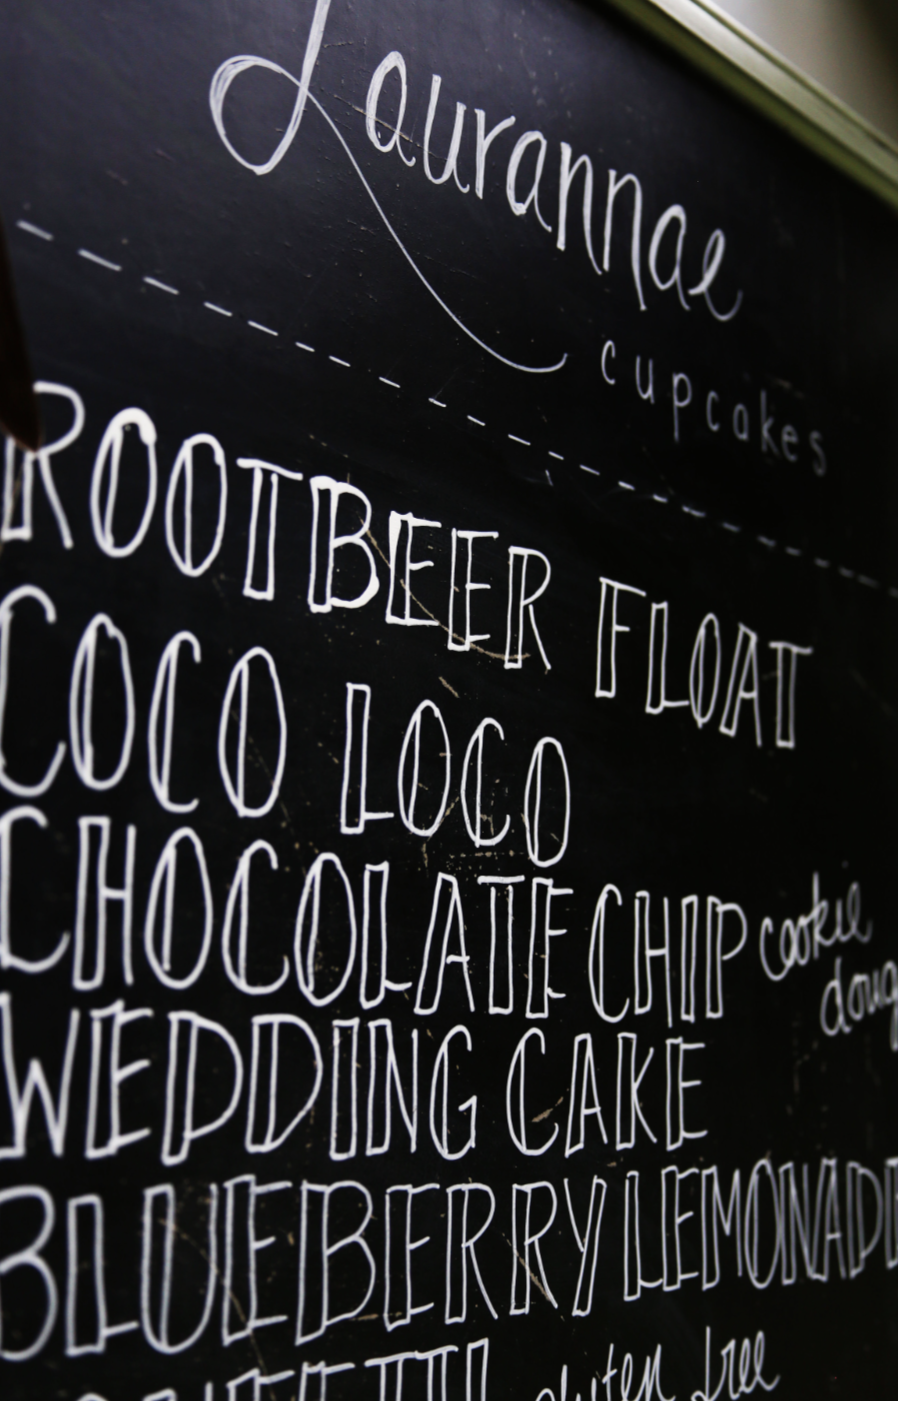 Laurannae
cupcakes
ROOTBEER FLOAT
COCO LOCO
CHOCOLATE CHIP cookie
doug
WEDDING CAKE
BLUEBERRY LEMONADE
gluten free